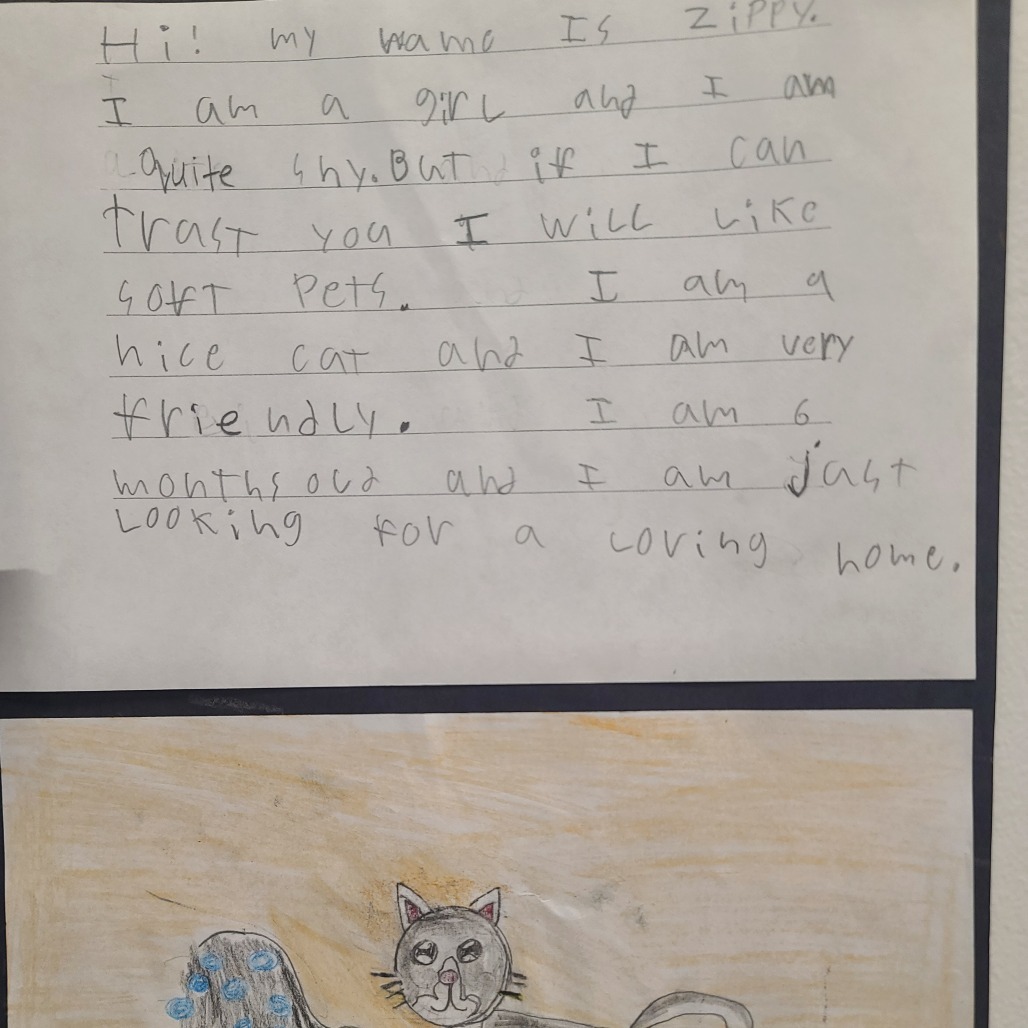 Hi! my name Is Zippy.
I am a girl and I am
quite shy. But if I can
trast you I will like
soft pets. I am a
nice cat and I am very
friendly. I am 6
months old and I am jast
Looking for a loving home.